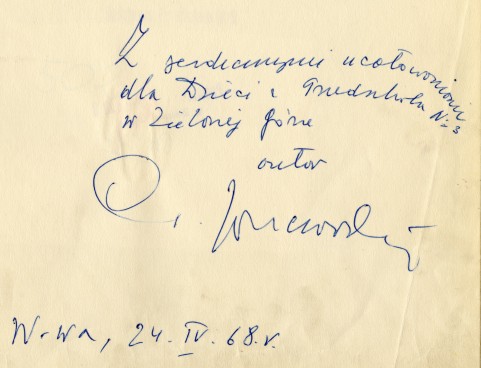 Z serdecznymi ucałowaniami
dla Dzieci z Przedszkola Nr 3
w Zielonej Górze
autor
W-wa, 24. IV. 68 r.